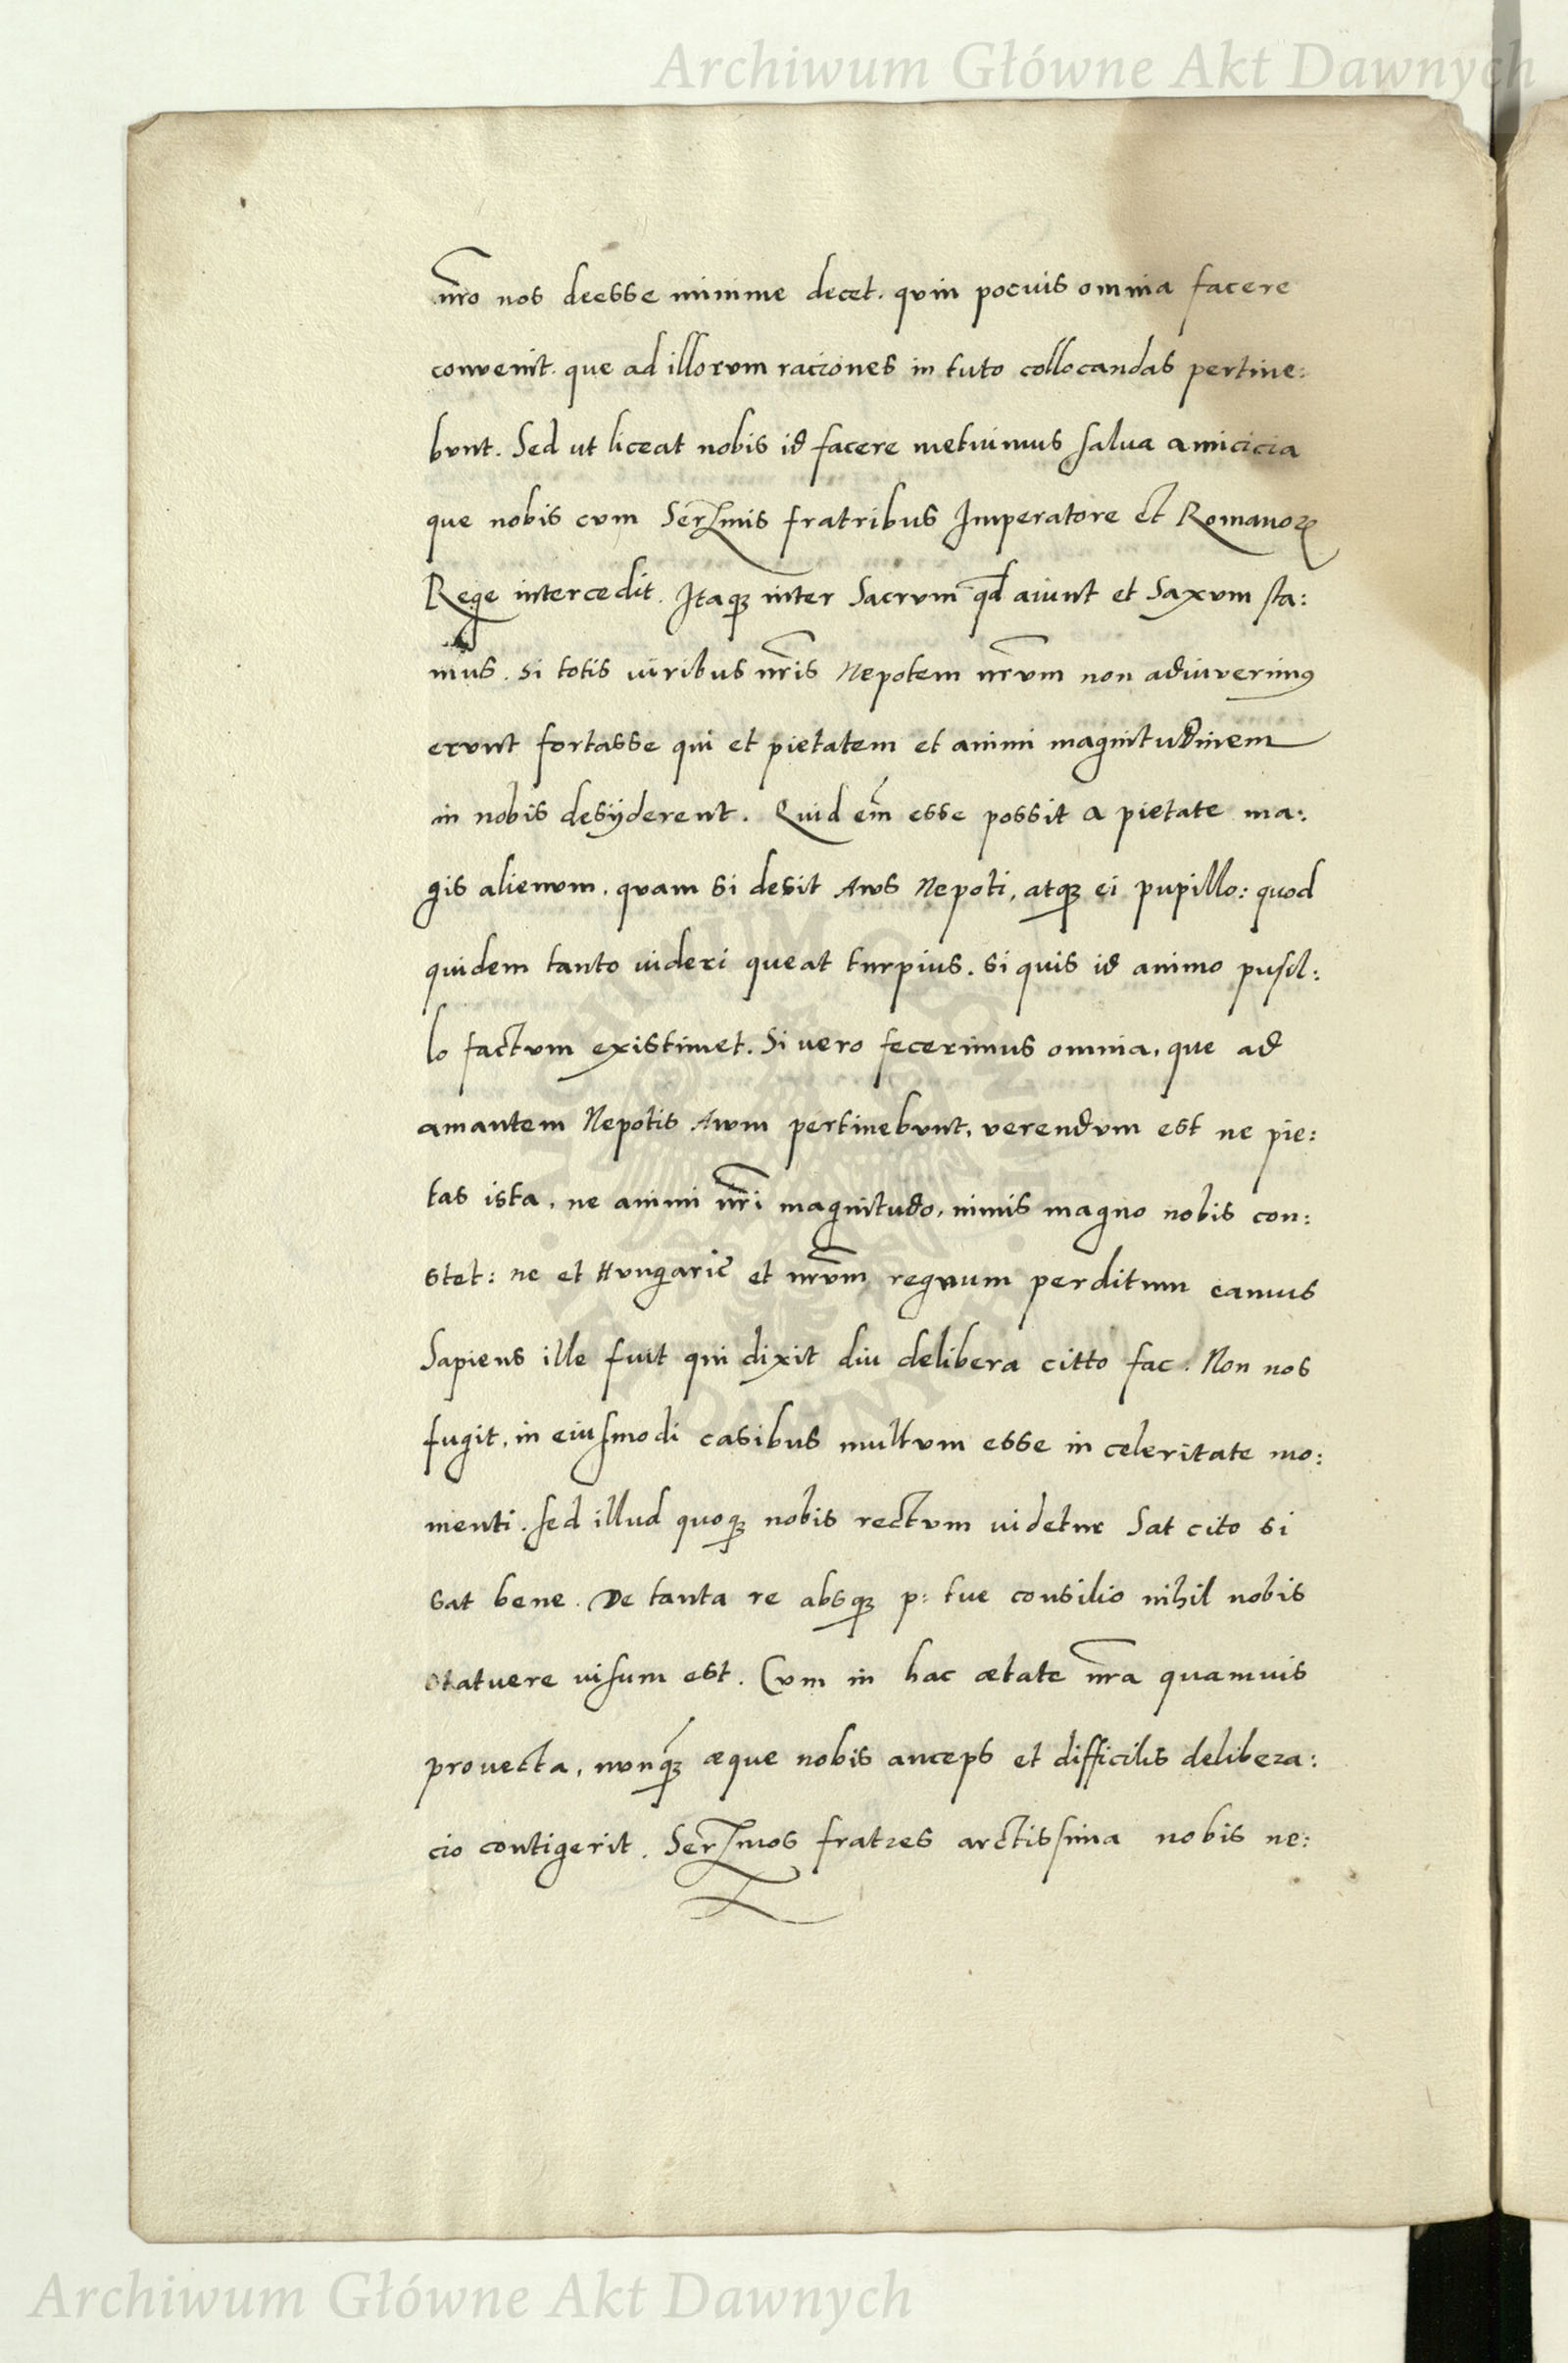 Archiwum Główne Akt Dawnych
nr̃o nos deesse minime decet. qvin pocuis omnia facere
convenit. que ad illorvm raciones in tuto collocandas pertine:
bvnt. Sed ut liceat nobis id facere metuimus salua amicicia
que nobis cvm Ser^mis fratribus Imperatore et Romanoꝝ
Rege intercedit. Itaqꝫ inter Sacrvm qd̃ aiunt et Saxvm sta:
mus. si totis uiribus nr̃is Nepotem nr̃vm non adiuverimꝰ
ervnt fortasse qui et pietatem et animi magnitudinem
in nobis desyderent. Quid em̃ esse possit a pietate ma:
gis alienvm. qvam si desit Avvs Nepoti, atqꝫ ei pupillo: quod
quidem tanto uideri queat turpius. si quis id animo pusil:
lo factvm existimet. Si vero fecerimus omnia, que ad
amantem Nepotis Avvm pertinebvnt, verendvm est ne pie:
tas ista, ne animi nr̃i magnitudo, nimis magno nobis con:
stet: ne et Hvngarię et nr̃vm regnum perditum eamus
Sapiens ille fuit qui dixit diu delibera citto fac. Non nos
fugit, in eiusmodi casibus multvm esse in celeritate mo:
menti. sed illud quoqꝫ nobis rectvm uidetur Sat cito si
sat bene. De tanta re absqꝫ p: tue consilio nihil nobis
statuere uisum est. Cvm in hac ætate nr̃a quamuis
prouecta, nvnqꝫ̃ æque nobis anceps et difficilis delibera:
cio contigerit. Ser^mos fratres arctissima nobis ne:
Archiwum Główne Akt Dawnych